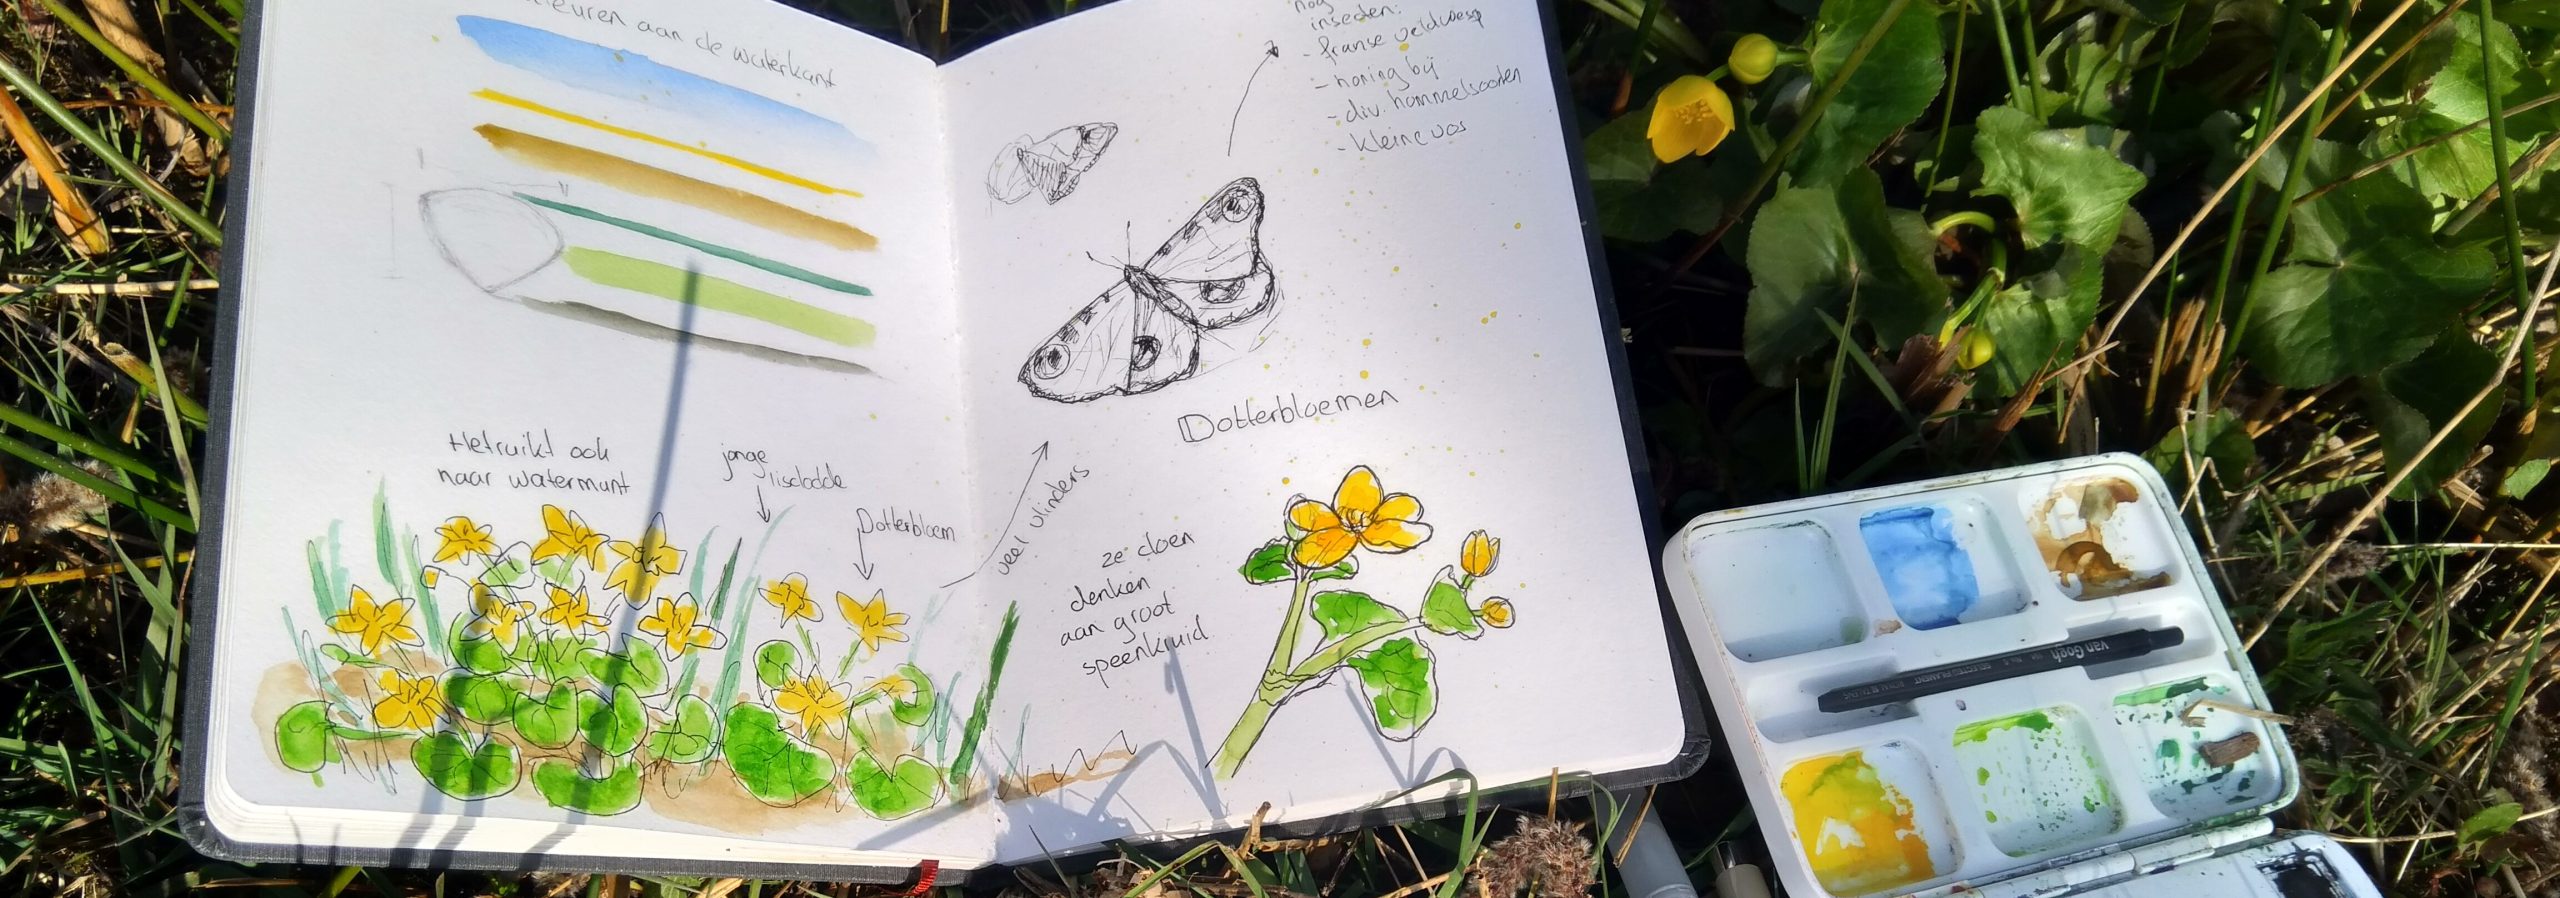 kleuren aan de waterkant
Het ruikt ook
naar watermunt
jonge
lisdodde
Dotterbloem
veel vlinders
nog
insecten:
- franse veldwesp
- honing bij
- div. hommelsoorten
- kleine vos
Dotterbloemen
ze doen
denken
aan groot
speenkruid
van Gogh